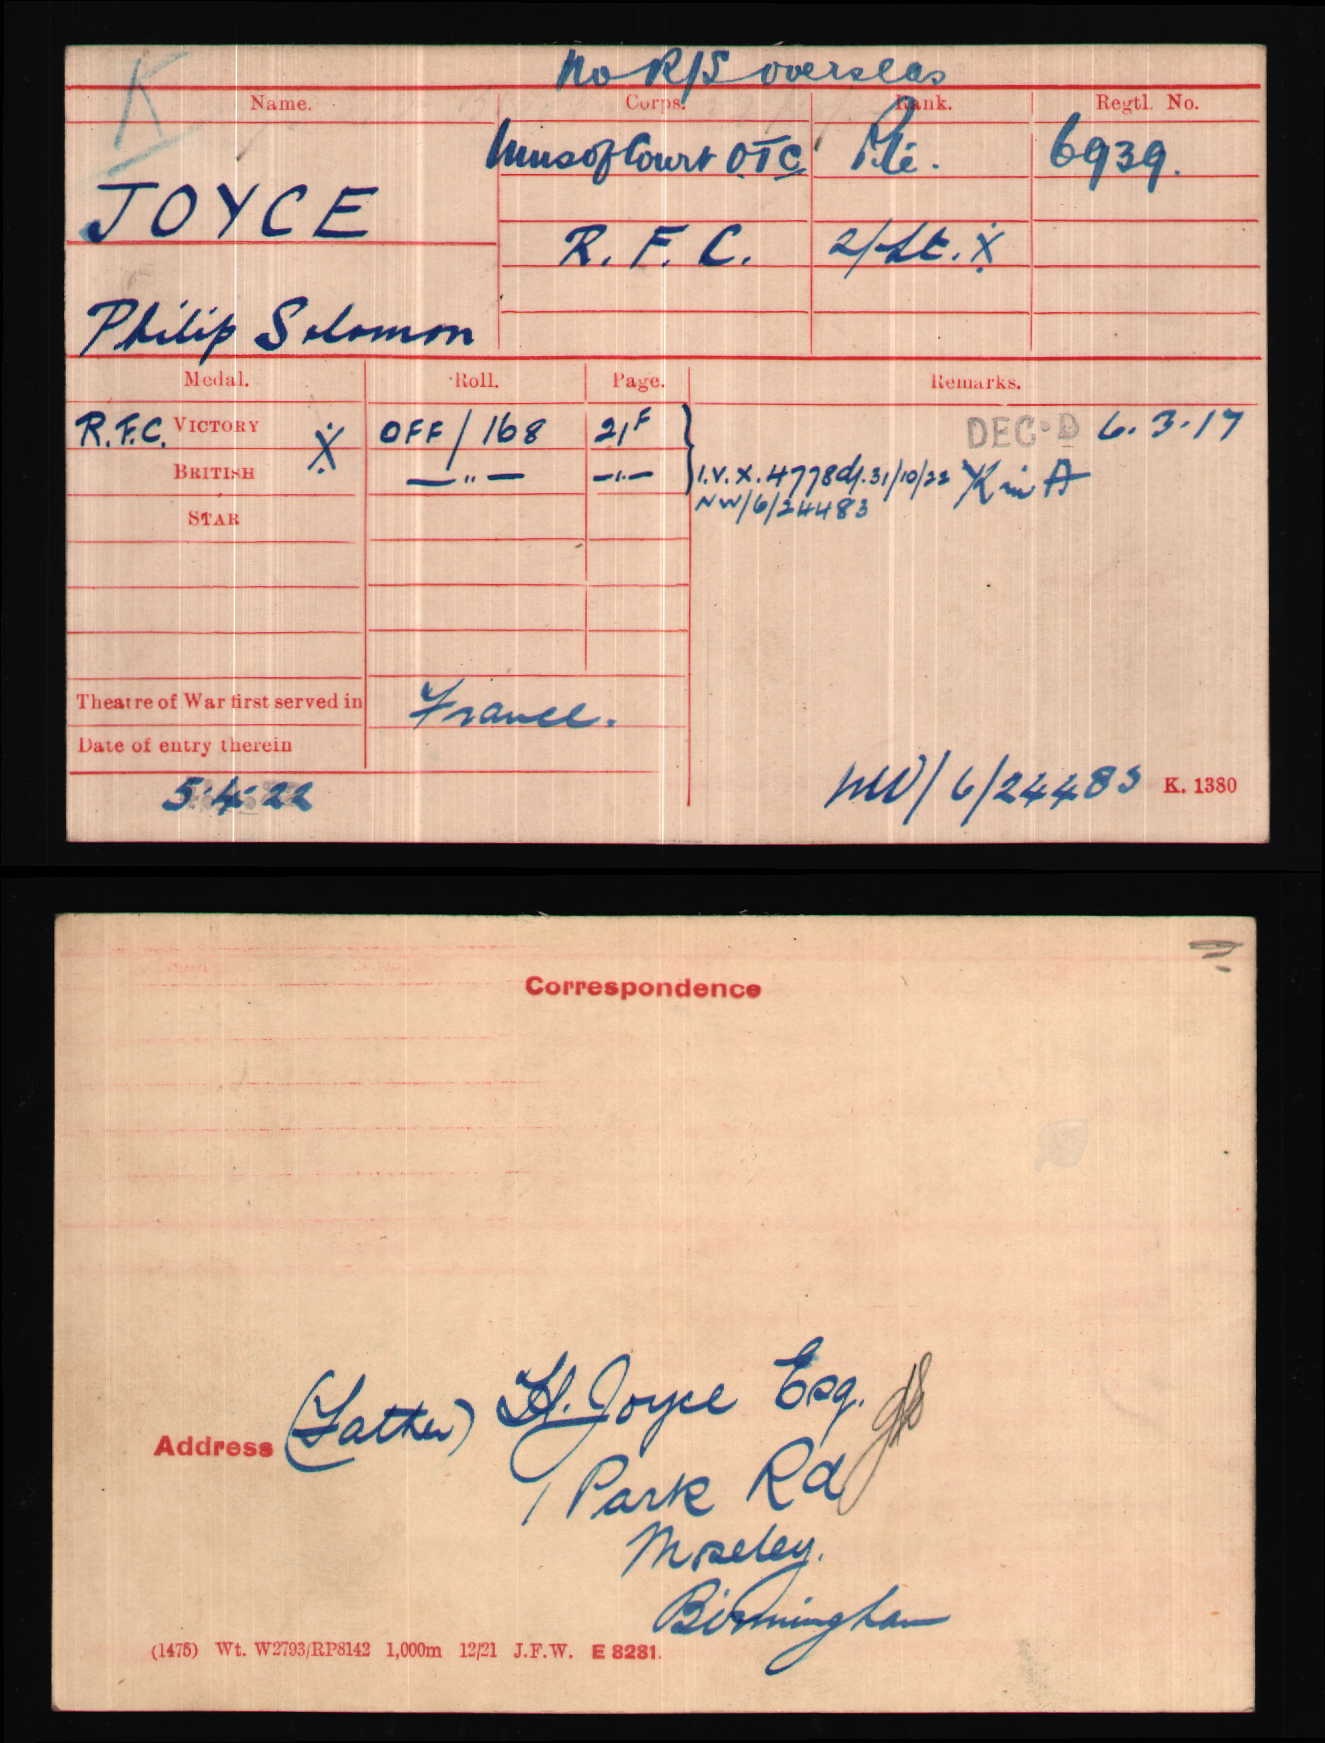 K
No R/S overseas
Name. Corps. Rank. Regtl. No.
Inns of Court OTC Pte. 6939.
JOYCE
R. F. C. 2/Lt. X
Philip Solomon
Medal. Roll. Page. Remarks.
R.F.C. VICTORY X OFF/168 21F DEC·D 6.3.17
BRITISH —"— —"— I.V.X. 4778 d/. 31/10/22 K in A
NW/6/24483
STAR
Theatre of War first served in France.
Date of entry therein
5.4.22 NW/6/24483 K. 1380
Correspondence
Address (Father) H. Joyce Esq.
1 Park Rd
Moseley.
Birmingham
(1475) Wt. W2793/RP8142 1,000m 12/21 J.F.W. E 8281.